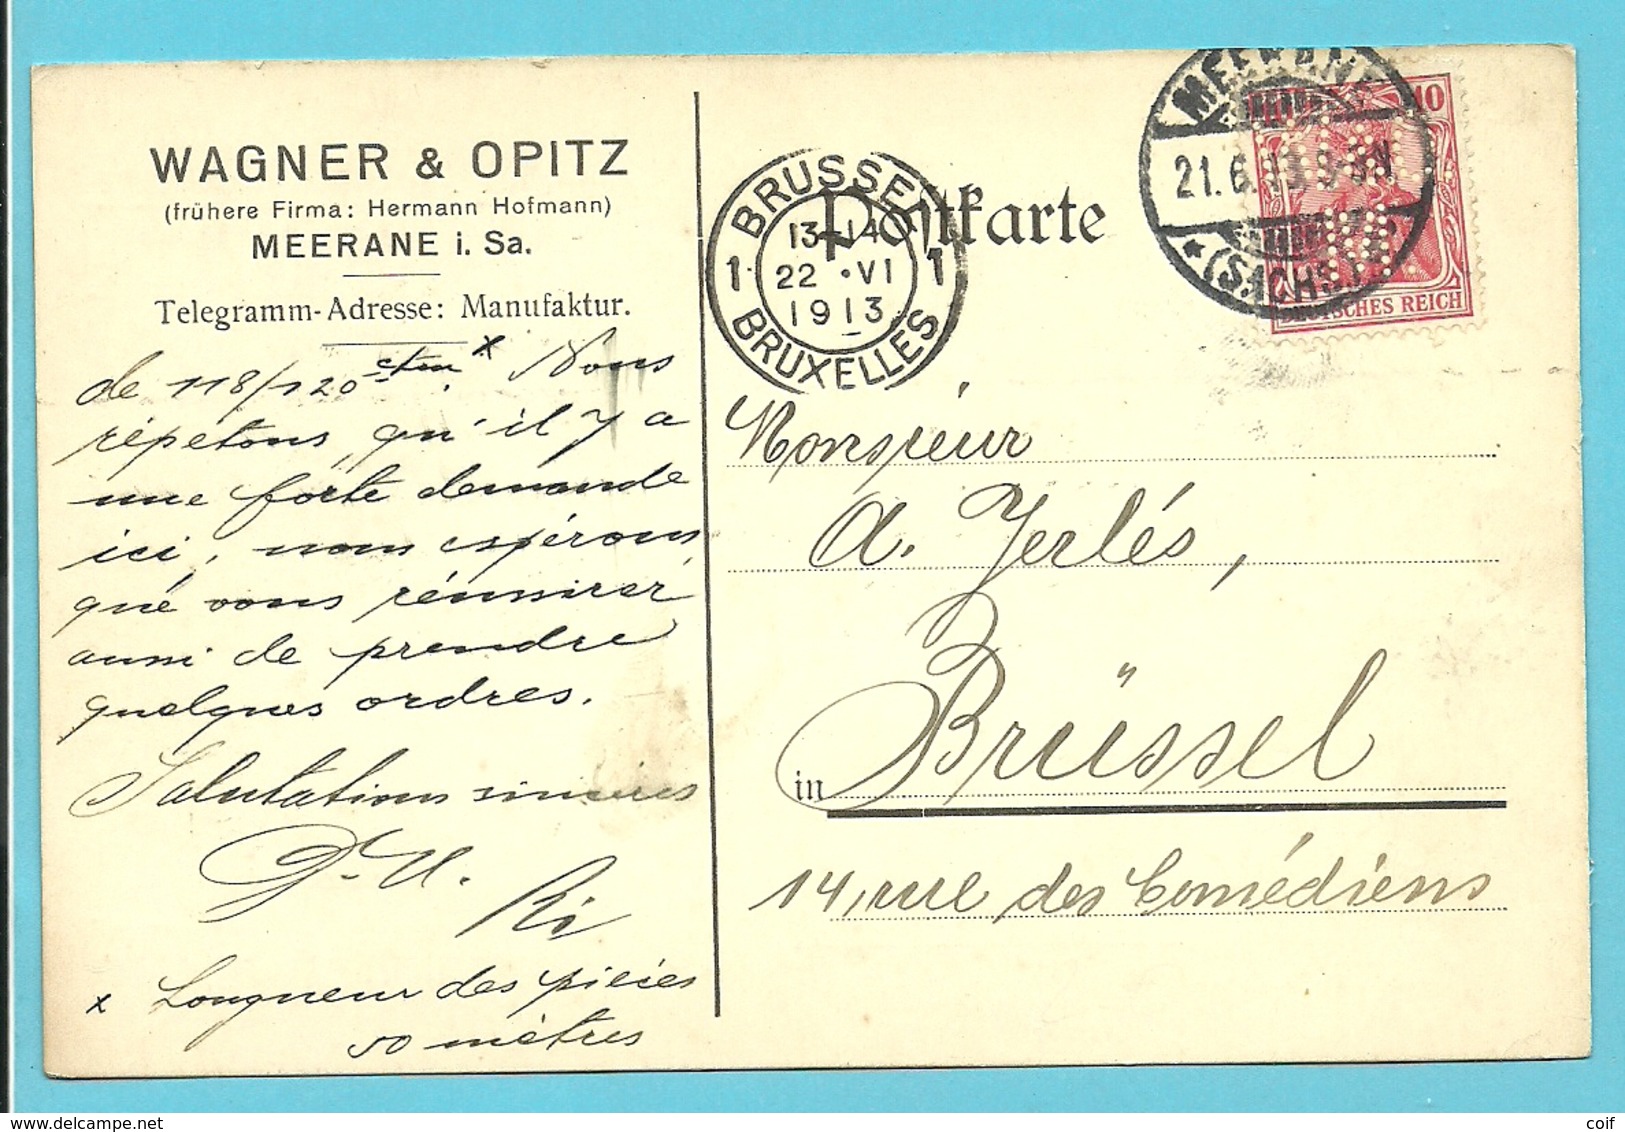 WAGNER & OPITZ
(frühere Firma: Hermann Hofmann)
MEERANE i. Sa.
Telegramm-Adresse: Manufaktur.
de 118/120 ctm. x Nous
répétons, qu'il y a
une forte demande
ici, nous espérons
qué vous réussirez
aussi de prendre
quelques ordres.
Salutations sincères
Longueur des pièces
x 50 mètres
Postkarte
BRUSSEL
13-14
1 22 · VI 1
1913
BRUXELLES
MEERANE
21.6.13 8-9N
* (SACHS.)
10
DEUTSCHES REICH
Monsieur
A. Jerlés,
in Brüssel
14, rue des Comédiens
coif